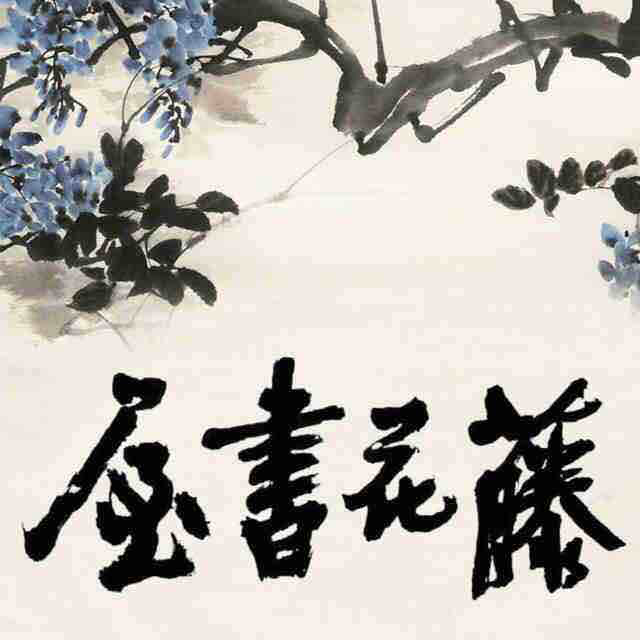 藤花書屋